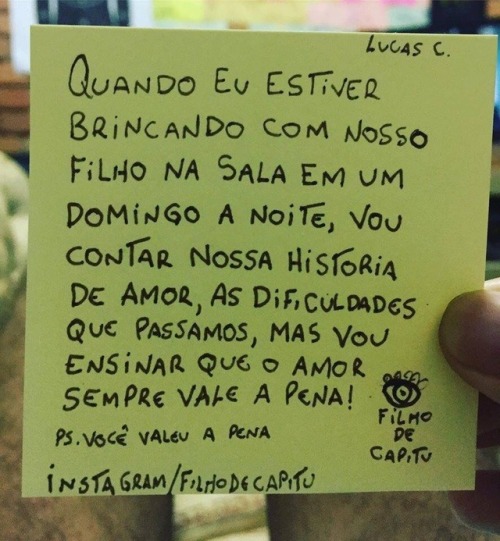 LUCAS C.
QUANDO EU ESTIVER
BRINCANDO COM NOSSO
FILHO NA SALA EM UM
DOMINGO A NOITE, VOU
CONTAR NOSSA HISTORIA
DE AMOR, AS DIFICULDADES
QUE PASSAMOS, MAS VOU
ENSINAR QUE O AMOR
SEMPRE VALE A PENA!
PS. VOCÊ VALEU A PENA
FILHO
DE
CAPITU
INSTAGRAM/FILHODECAPITU